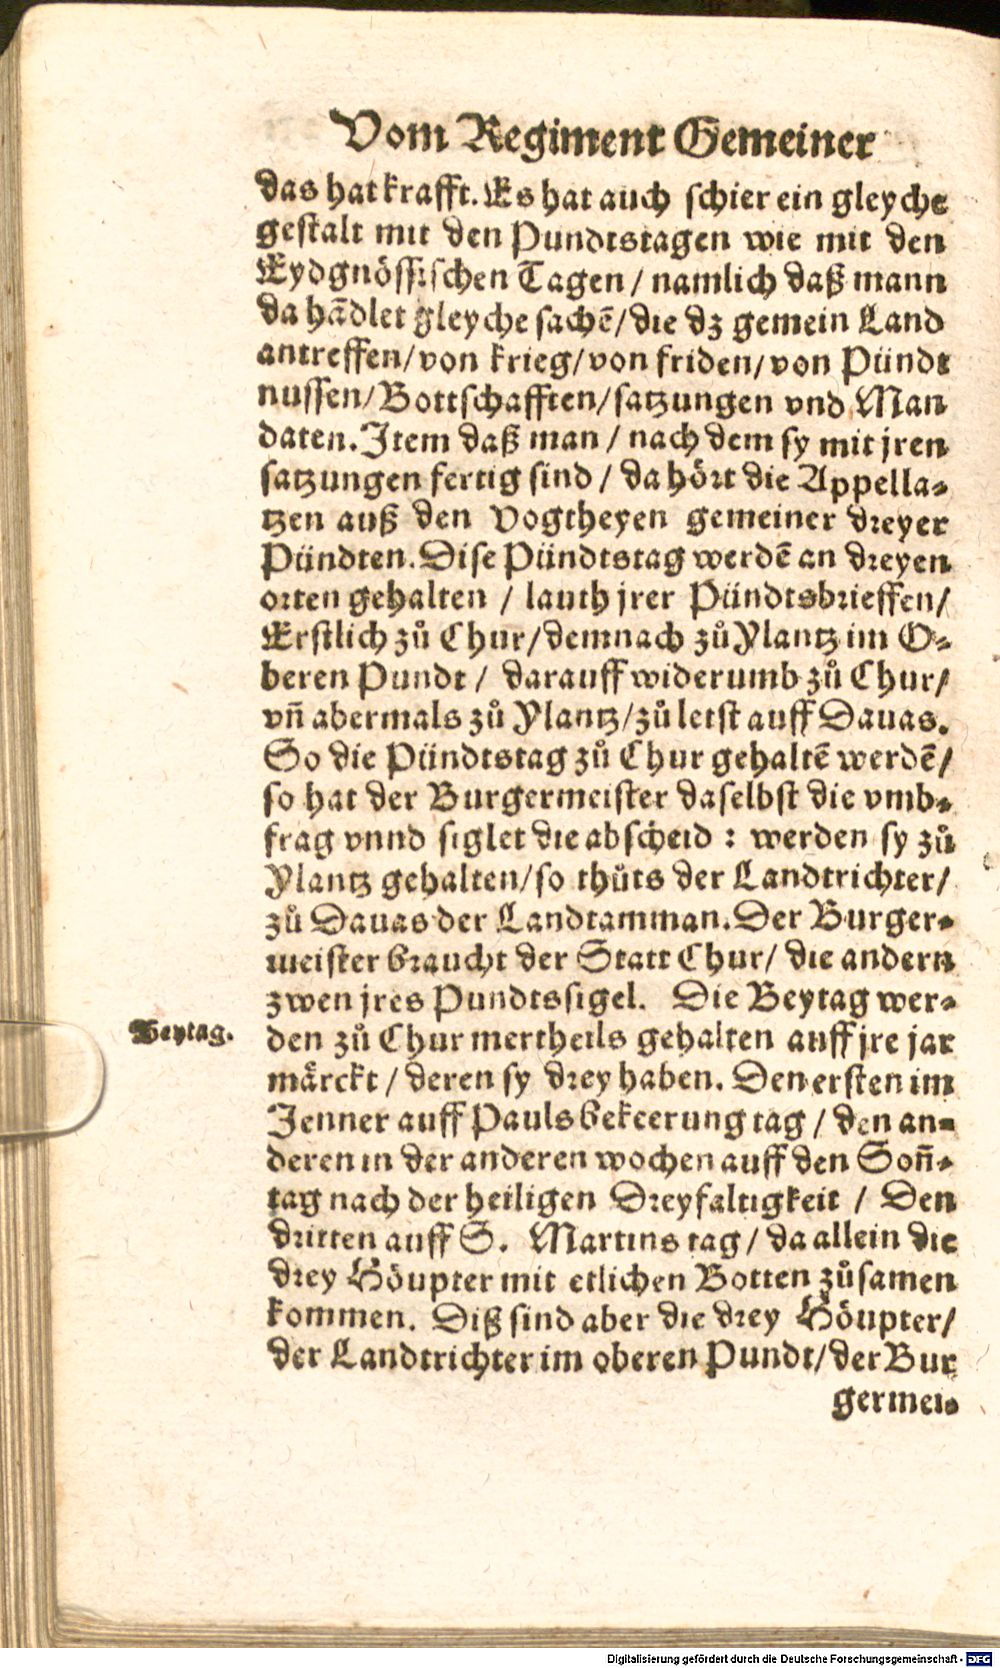 Vom Regiment Gemeiner
das hat krafft. Es hat auch schier ein gleyche
gestalt mit den Pundtstagen wie mit den
Eydgnössischen Tagen / namlich daß mann
da hādlet gleyche sachē / die dz gemein Land
antreffen / von krieg / von friden / von Pündt
nussen / Bottschafften / satzungen vnd Man
daten. Item daß man / nach dem sy mit jren
satzungen fertig sind / da hört die Appella⸗
tzen auß den Vogtheyen gemeiner dreyer
Pündten. Dise Pündtstag werdē an dreyen
orten gehalten / lauth jrer Pündtsbrieffen /
Erstlich zů Chur / demnach zů Ylantz im O⸗
beren Pundt / darauff widerumb zů Chur /
vn̄ abermals zů Ylantz / zů letst auff Dauas.
So die Pündtstag zů Chur gehaltē werdē /
so hat der Burgermeister daselbst die vmb⸗
frag vnnd siglet die abscheid : werden sy zů
Ylantz gehalten / so thůts der Landtrichter /
zů Dauas der Landtamman. Der Burger⸗
meister braucht der Statt Chur / die andern
zwen jres Pundtssigel. Die Beytag wer⸗
Beytag.
den zů Chur mertheils gehalten auff jre jar
märckt / deren sy drey haben. Den ersten im
Jenner auff Pauls bekeerung tag / den an⸗
deren in der anderen wochen auff den Son̄⸗
tag nach der heiligen Dreyfaltigkeit / Den
dritten auff S. Martins tag / da allein die
drey Höupter mit etlichen Botten zůsamen
kommen. Diß sind aber die drey Höupter /
der Landtrichter im oberen Pundt / der Bur
germei⸗
Digitalisierung gefördert durch die Deutsche Forschungsgemeinschaft - DFG